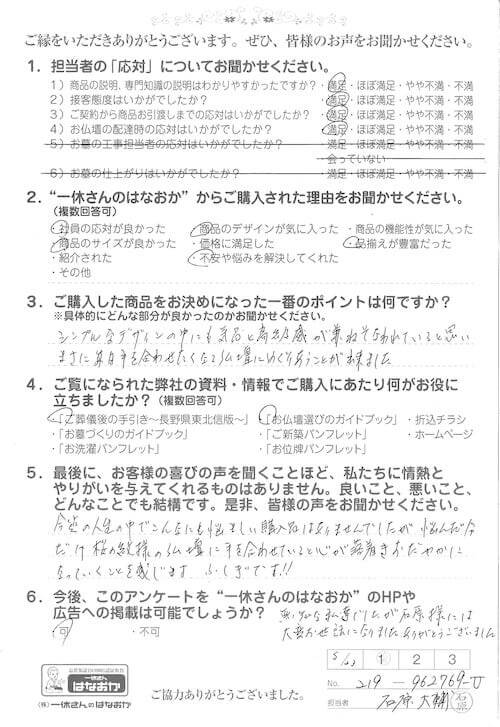 ご縁をいただきありがとうございます。ぜひ、皆様のお声をお聞かせください。
1．担当者の「応対」についてお聞かせください。
1）商品の説明、専門知識の説明はわかりやすかったですか？・満足・ほぼ満足・やや不満・不満
2）接客態度はいかがでしたか？ ・満足・ほぼ満足・やや不満・不満
3）ご契約から商品お引渡しまでの応対はいかがでしたか？・満足・ほぼ満足・やや不満・不満
4）お仏壇の配達時の応対はいかがでしたか？ ・満足・ほぼ満足・やや不満・不満
5）お墓の工事担当者の応対はいかがでしたか？ ・満足・ほぼ満足・やや不満・不満
・会っていない
6）お墓の仕上がりはいかがでしたか？ ・満足・ほぼ満足・やや不満・不満
2．“一休さんのはなおか”からご購入された理由をお聞かせください。
（複数回答可）
・社員の応対が良かった ・商品のデザインが気に入った ・商品の機能性が気に入った
・商品のサイズが良かった ・価格に満足した ・品揃えが豊富だった
・紹介された ・不安や悩みを解決してくれた
・その他
3．ご購入した商品をお決めになった一番のポイントは何ですか？
※具体的にどんな部分が良かったのかお聞かせください。
シンプルなデザインの中にも気品と高級感が兼ねそなわれていると思い
まさに毎日手を合わせたくなる仏壇にめぐりあうことが出来ました
4．ご覧になられた弊社の資料・情報でご購入にあたり何がお役に
立ちましたか？（複数回答可）
・「ご葬儀後の手引き～長野県東北信版～」 ・「お仏壇選びのガイドブック」 ・折込チラシ
・「お墓づくりのガイドブック」 ・「ご新築パンフレット」 ・ホームページ
・「お洗濯パンフレット」 ・「お位牌パンフレット」
5．最後に、お客様の喜びの声を聞くことほど、私たちに情熱と
やりがいを与えてくれるものはありません。良いこと、悪いこと、
どんなことでも結構です。是非、皆様の声をお聞かせください。
今迄の人生の中でこんなにも悩ましい購入品はありませんでしたが 悩んだ分
だけ桜の紋様の仏壇に手を合わせていると心が落着きおだやかに
なっていくことを感じます ふしぎです!!
6．今後、このアンケートを“一休さんのはなおか”のHPや
広告への掲載は可能でしょうか？
・可 ・不可
私達でしたが石原様には
大変お世話になりました ありがとうございました
1 2 3
No. 219-962769-U
担当者 石原大輔 石原
一休さんの
はなおか
（株）一休さんのはなおか
ご協力ありがとうございました。